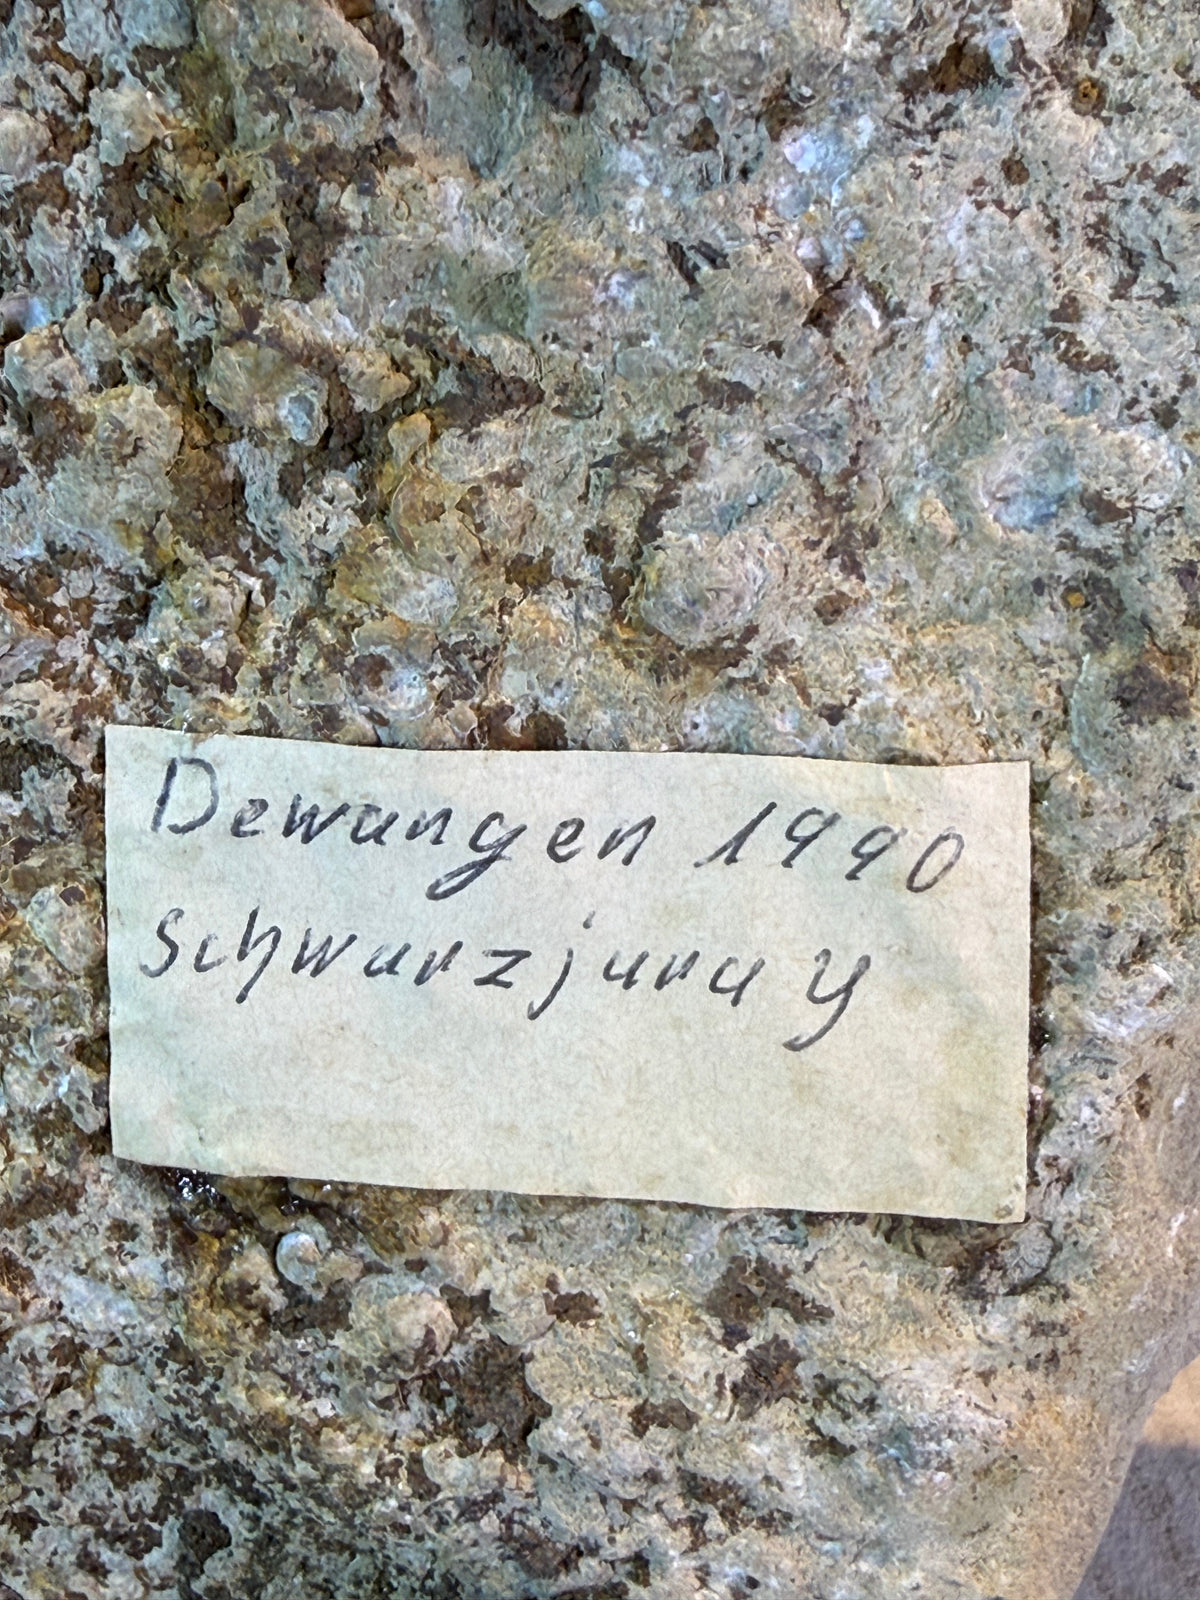 Dewangen 1990
Schwarzjura y